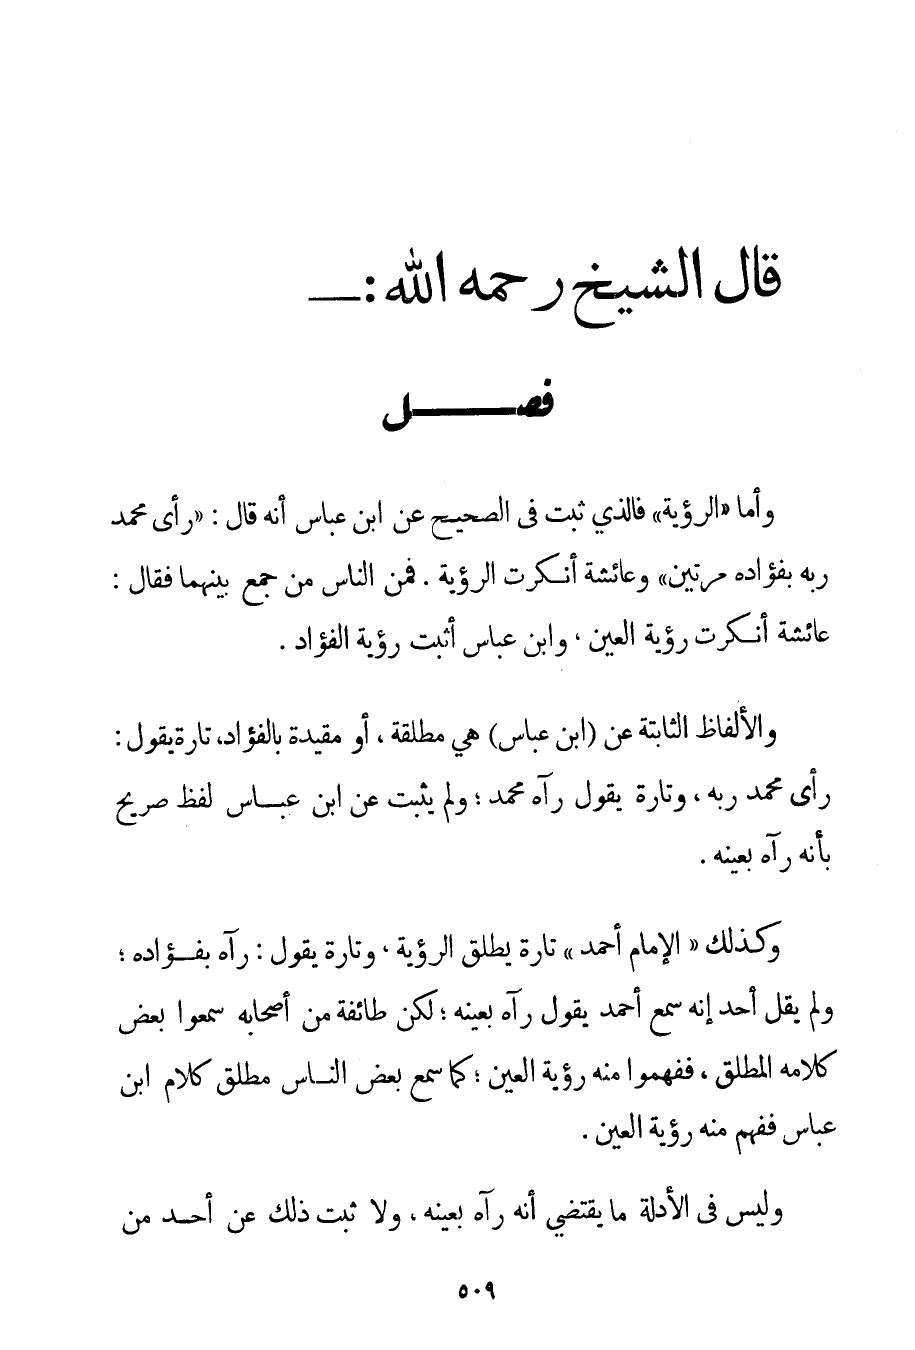 قال الشيخ رحمه الله : ـــ
فصـــــل
وأما «الرؤية» فالذي ثبت فى الصحيح عن ابن عباس أنه قال : «رأى محمد
ربه بفؤاده مرتين» وعائشة أنكرت الرؤية . فمن الناس من جمع بينهما فقال :
عائشة أنكرت رؤية العين ، وابن عباس أثبت رؤية الفؤاد .
والألفاظ الثابتة عن (ابن عباس) هي مطلقة ، أو مقيدة بالفؤاد، تارة يقول :
رأى محمد ربه ، وتارة يقول رآه محمد ؛ ولم يثبت عن ابن عبـــاس لفظ صريح
بأنه رآه بعينه .
وكذلك « الإمام أحمد » تارة يطلق الرؤية ، وتارة يقول : رآه بفـــؤاده ؛
ولم يقل أحد إنه سمع أحمد يقول رآه بعينه ؛ لكن طائفة من أصحابه سمعوا بعض
كلامه المطلق ، ففهموا منه رؤية العين ؛ كما سمع بعض النـــاس مطلق كلام ابن
عباس ففهم منه رؤية العين .
وليس فى الأدلة ما يقتضي أنه رآه بعينه ، ولا ثبت ذلك عن أحـــد من
٥٠٩